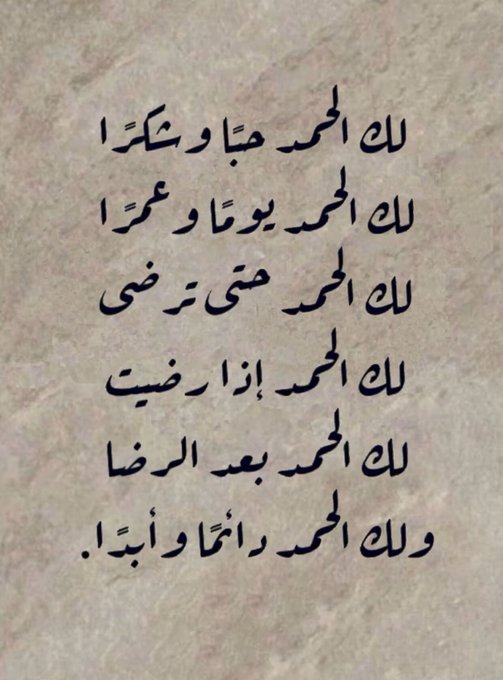 لك الحمد حبًا وشكرًا
لك الحمد يومًا وعمرًا
لك الحمد حتى ترضى
لك الحمد إذا رضيت
لك الحمد بعد الرضا
ولك الحمد دائمًا وأبدًا.